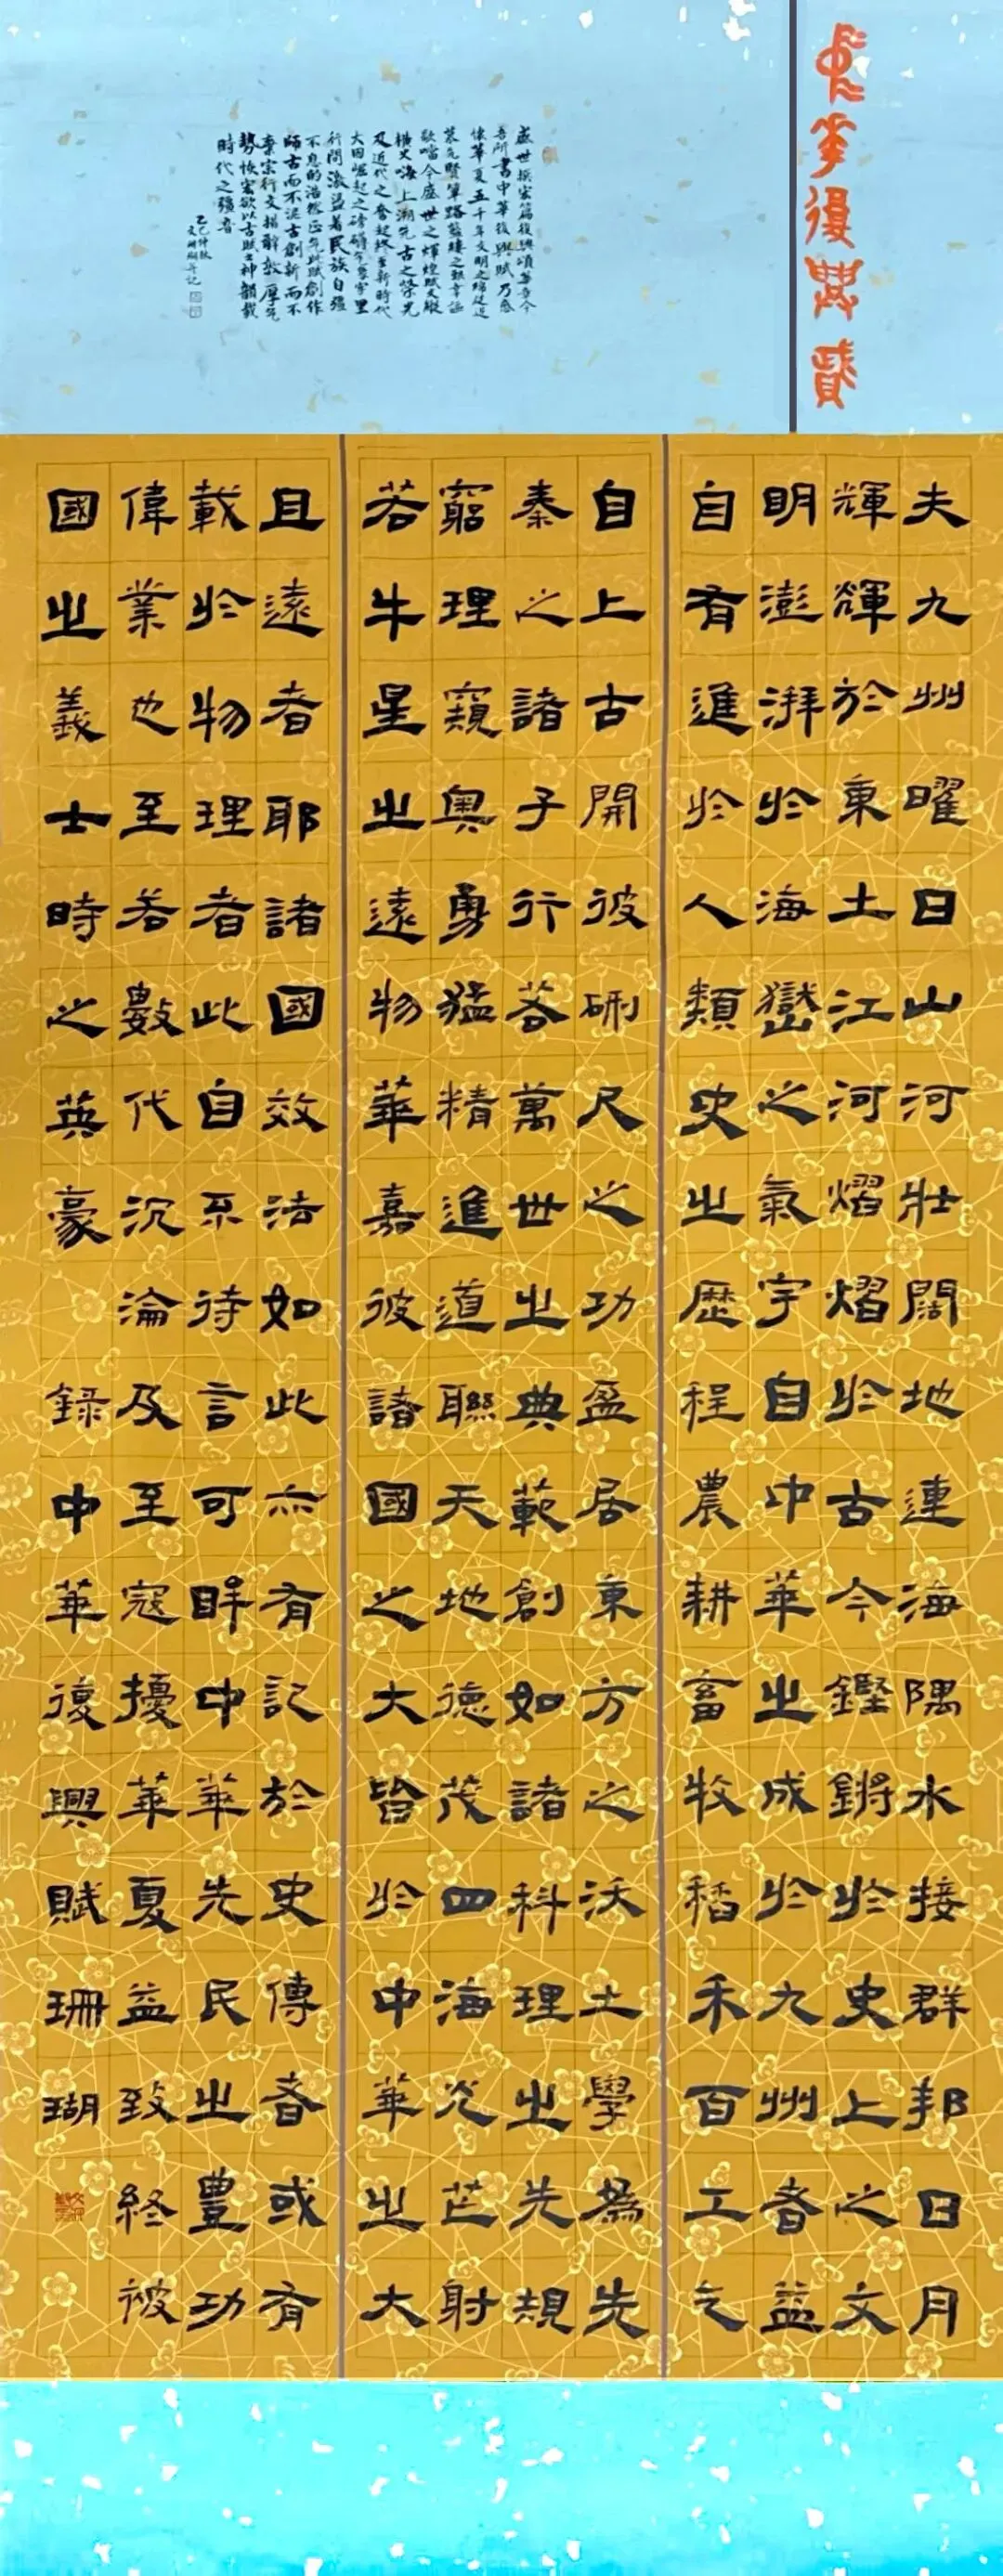 中華復興賦
盛世撰宏篇復興頌華章今
吾所書中華復興賦乃感
懷華夏五千年文明之綿延追
慕先賢篳路藍縷之艱辛謳
歌當今盛世之輝煌賦文縱
橫史海上溯先古之榮光
及近代之奮起終至新時代
大國崛起之磅礴氣象字里
行間激盪着民族自強
不息的浩然正氣此賦創作
師古而不泥古創新而不
棄宗行文措辭敦厚氣
勢恢宏欲以古賦之神韻載
時代之強音
乙巳仲秋
夫九州曜日山河壯闊地連海隅水接群邦日月
輝輝於東土江河熠熠於古今鏗鏘於史上之文
明澎湃於海嶽之氣宇自中華之成於九州者益
自有進於人類史之歷程農耕畜牧稻禾百工之
自上古開彼硎尺之功盈居東方之沃土學為先
秦之諸子行若萬世之典範創如諸科理之先規
窮理窺奧勇猛精進道聯天地德茂四海光芒射
若牛星之遠物華嘉彼諸國之大皆於中華之大
且遠者耶諸國效法如此亦有記於史傳者或有
載於物理者此自系待言可眸中華先民之豐功
偉業也至若數代沉淪及至寇擾華夏益致終被
國之義士時之英豪 錄中華復興賦珊瑚